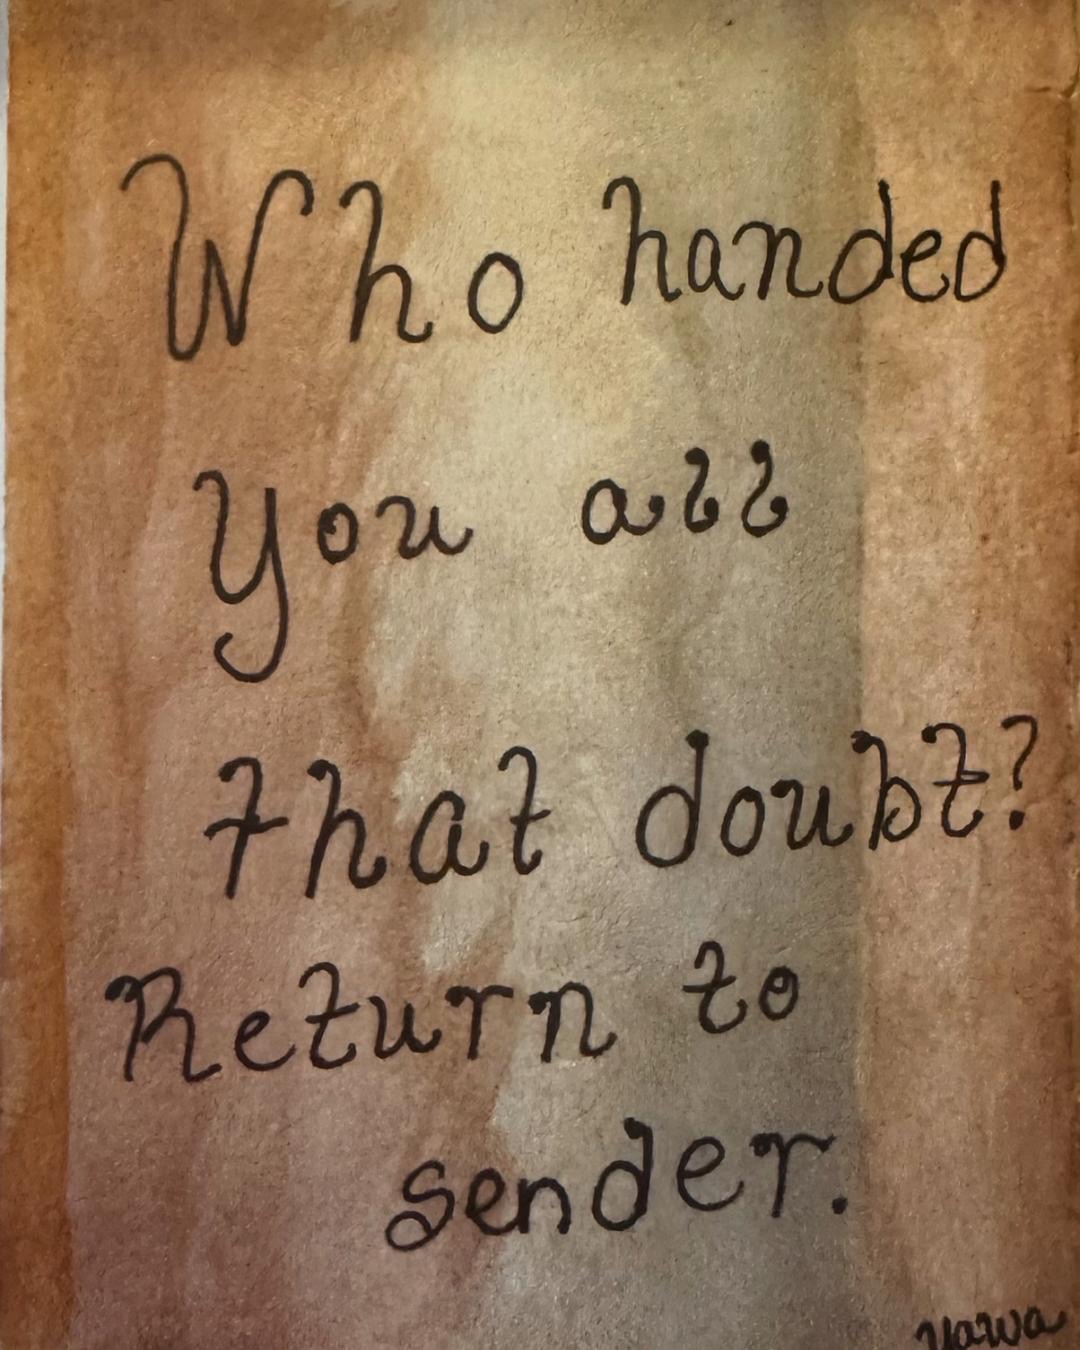 Who handed
You all
that doubt?
Return to
sender.
yawa